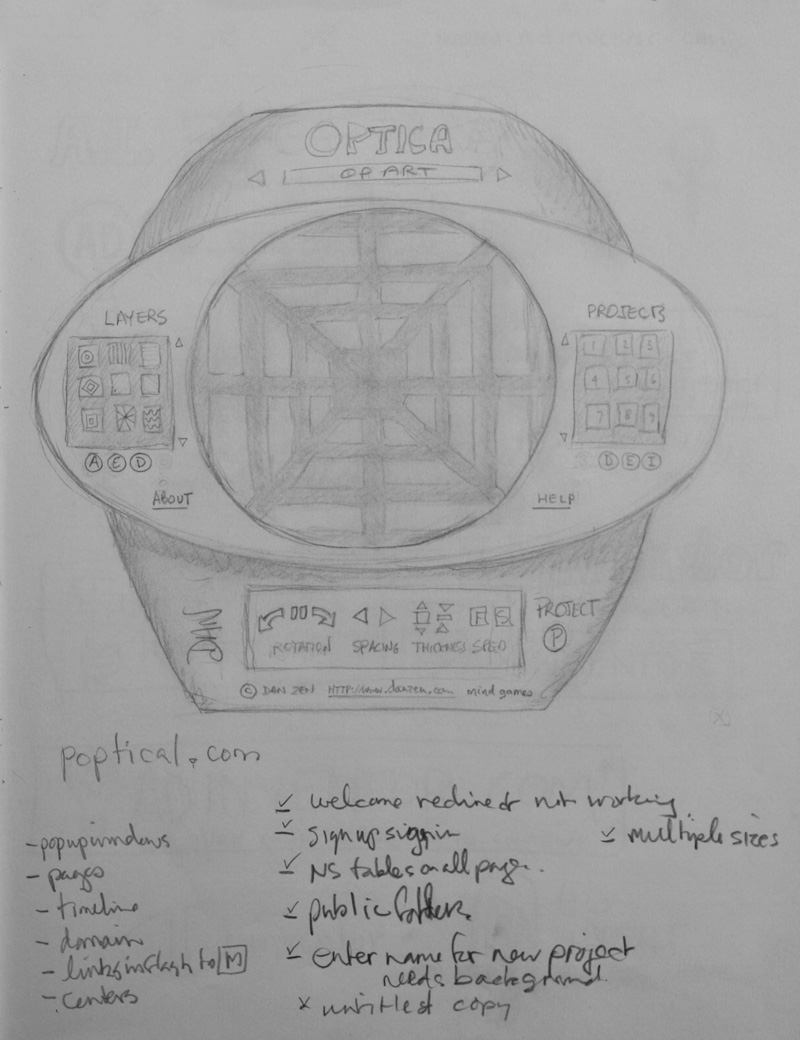 OPTICA
OP ART
LAYERS
PROJECTS
1 2 3
4 5 6
7 8 9
A E D
D E I
ABOUT
HELP
DAN
ROTATION SPACING THICKNESS SPEED
F S
PROJECT
P
© DAN ZEN HTTP://www.danzen.com mind games
poptical.com
- popupwindows
- pages
- timeline
- domain
- links in flash to M
- centers
welcome redirect not working
signup sign in
multiple sizes
NS tables on all page.
public folder
enter name for new project
needs background
x untitlest copy